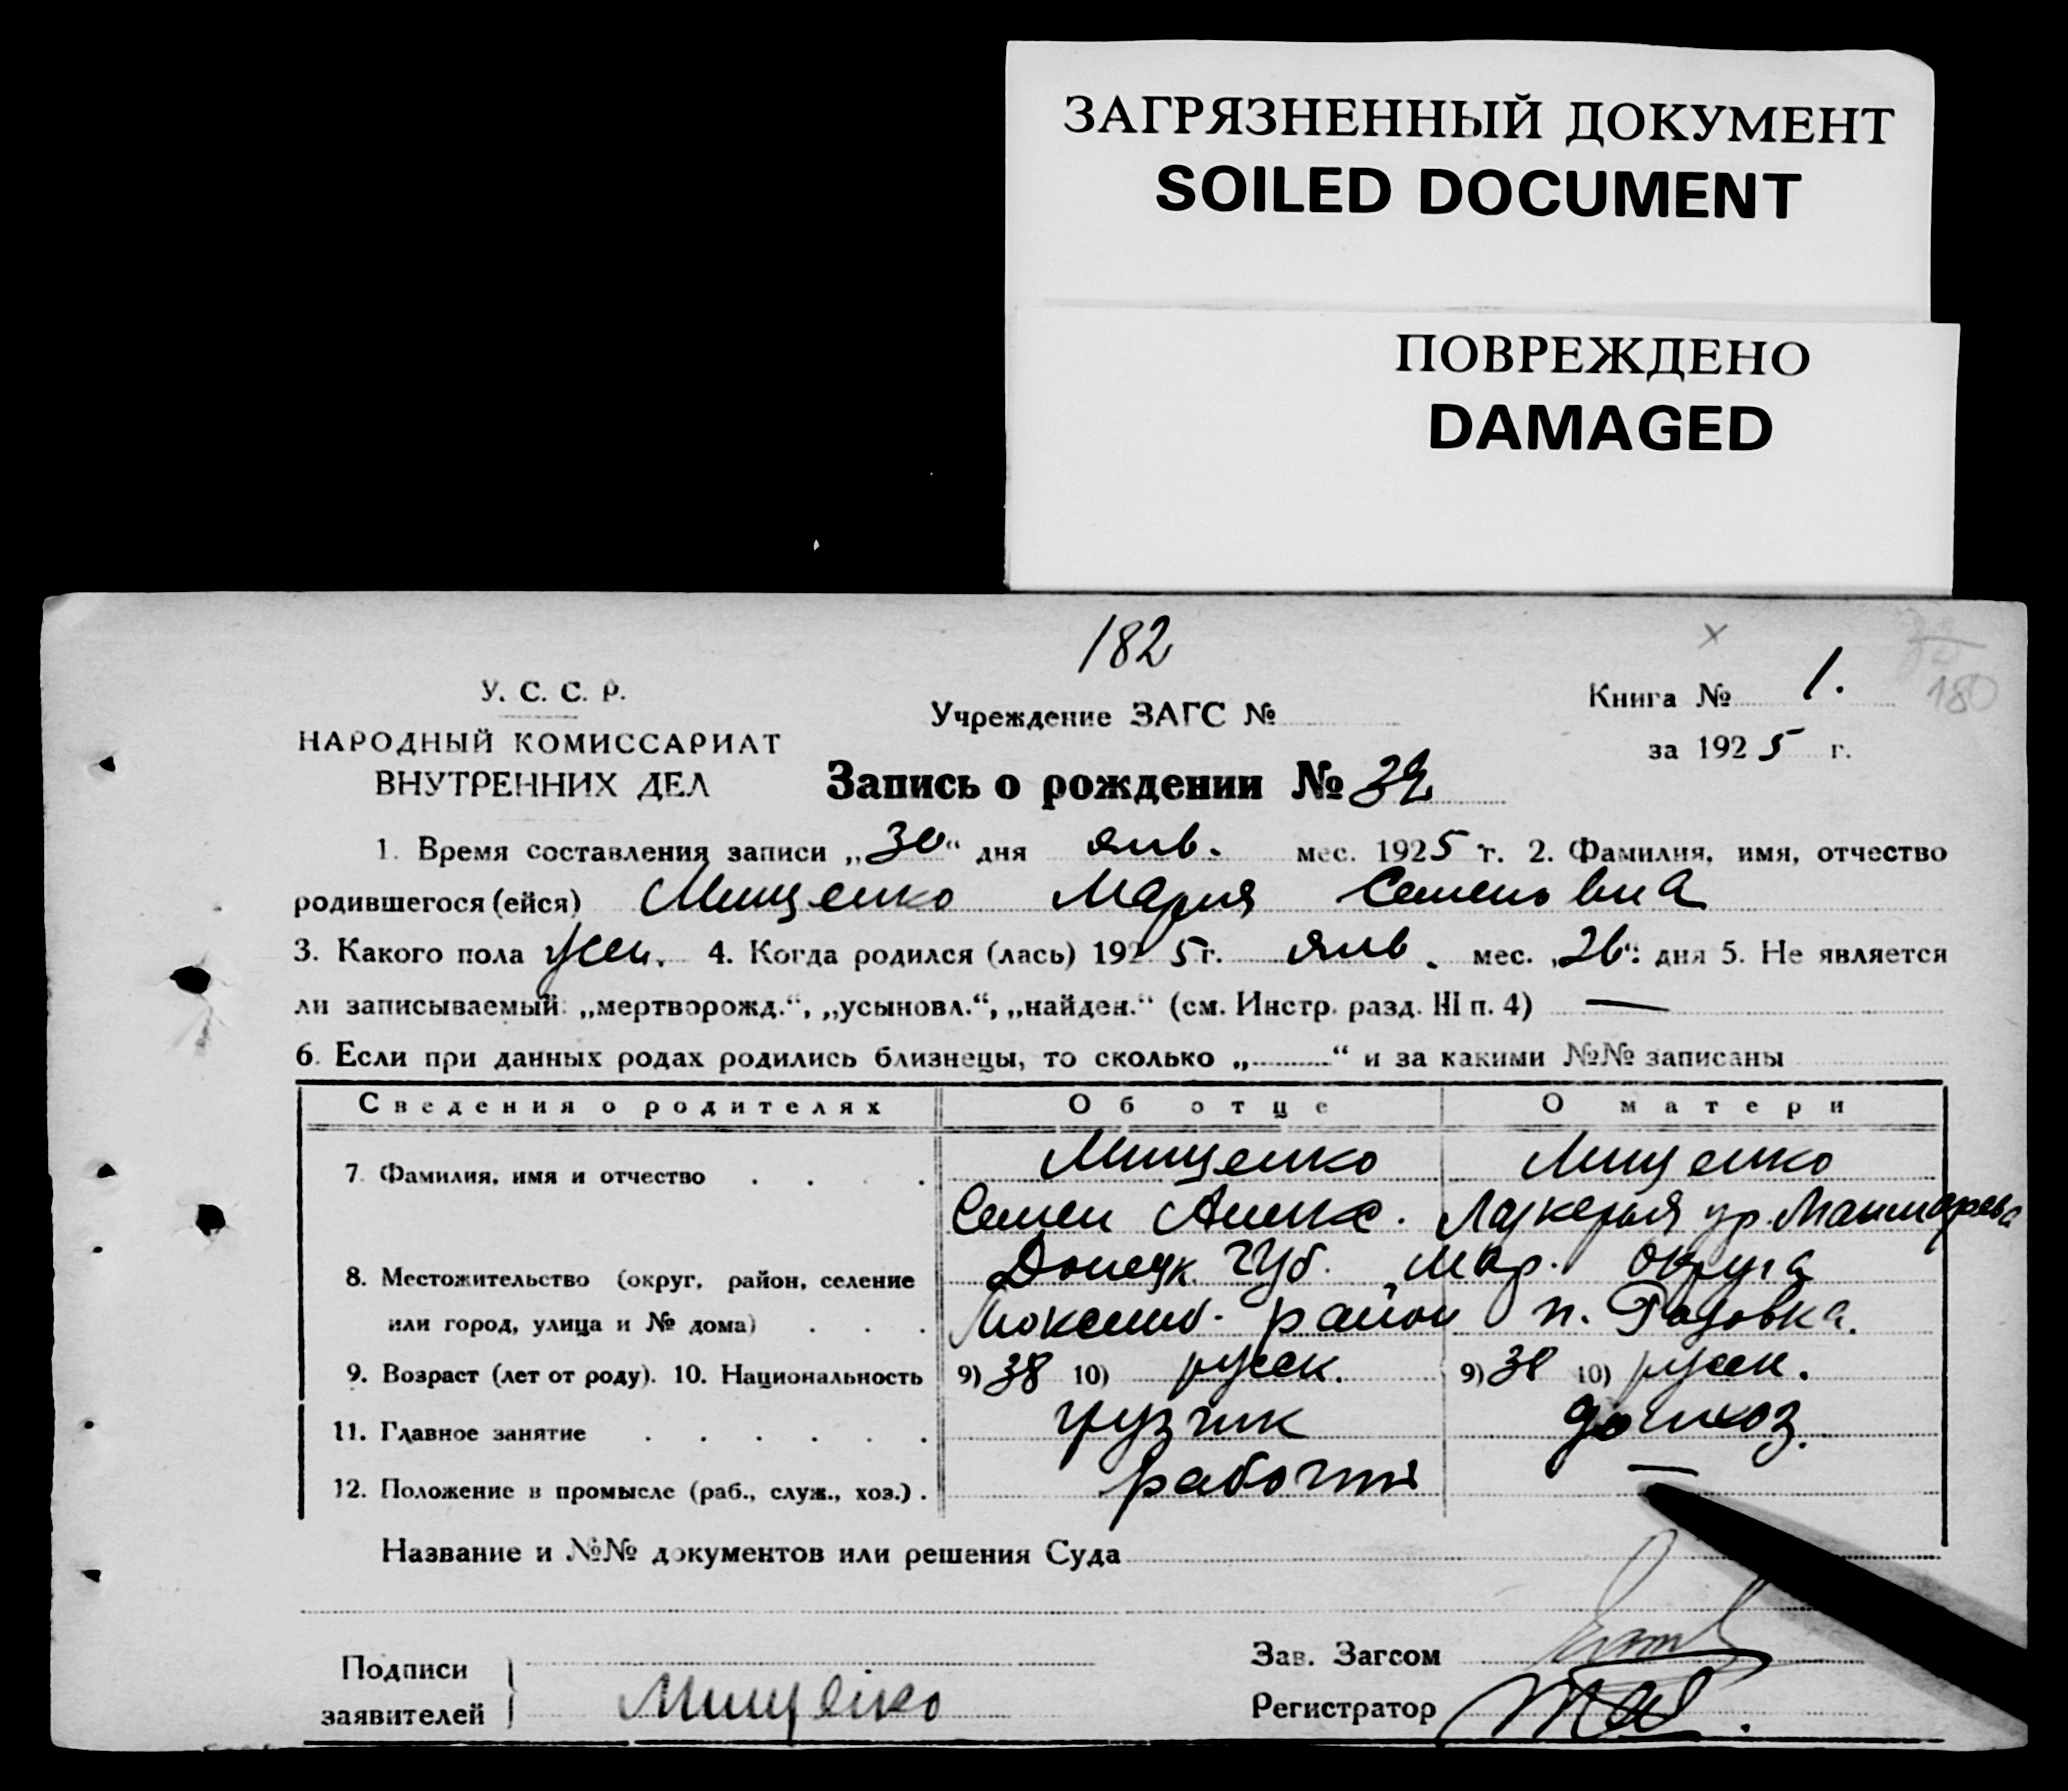 ЗАГРЯЗНЕННЫЙ ДОКУМЕНТ
SOILED DOCUMENT
ПОВРЕЖДЕНО
DAMAGED
182
У. С. С. Р.
НАРОДНЫЙ КОМИССАРИАТ
ВНУТРЕННИХ ДЕЛ
Учреждение ЗАГС №
Книга № 1.
180
за 1925 г.
Запись о рождении № 32
1. Время составления записи „30“ дня янв. мес. 1925 г. 2. Фамилия, имя, отчество
родившегося (ейся) Мищенко Мария Семеновна
3. Какого пола жен. 4. Когда родился (лась) 1925 г. янв. мес. „26“ дня 5. Не является
ли записываемый: „мертворожд.“, „усыновл.“, „найден.“ (см. Инстр. разд. III п. 4) —
6. Если при данных родах родились близнецы, то сколько „..........“ и за какими №№ записаны
Сведения о родителях Об отце О матери
7. Фамилия, имя и отчество Мищенко Мищенко
Семен Алекс. Лукерья ур.
8. Местожительство (округ, район, селение Донецк. губ. Мар. округа
или город, улица и № дома) район п.
9. Возраст (лет от роду). 10. Национальность 9) 38 10) русск. 9) 38 10) русск.
11. Главное занятие грузчик домхоз.
12. Положение в промысле (раб., служ., хоз.) рабочий —
Название и №№ документов или решения Суда
Подписи
заявителей Мищенко
Зав. Загсом
Регистратор